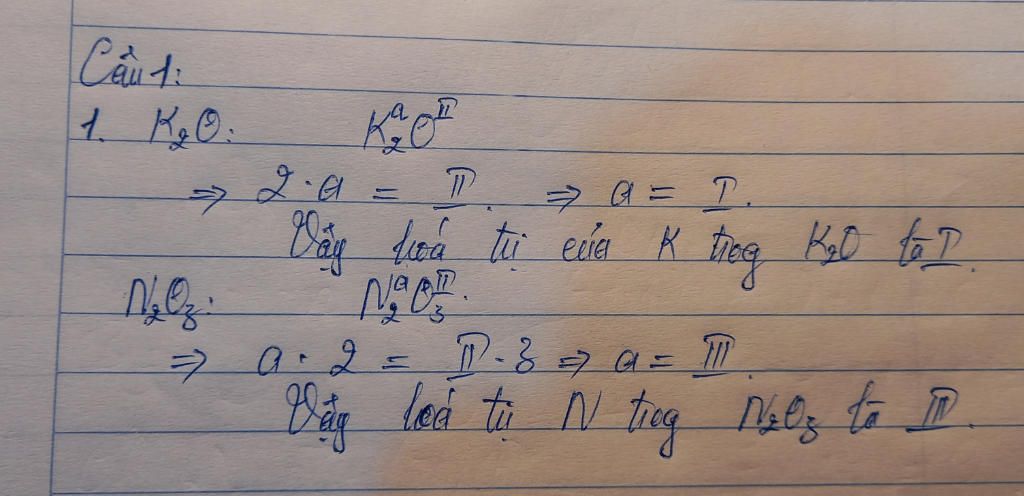 Câu 1:
1. K₂O: K₂ᵃO^II
=> 2 · a = II. => a = I.
Vậy hoá trị của K trog K₂O là I.
N₂O₃: N₂ᵃO₃^II.
=> a · 2 = II · 3 => a = III.
Vậy hoá trị N trog N₂O₃ là III.